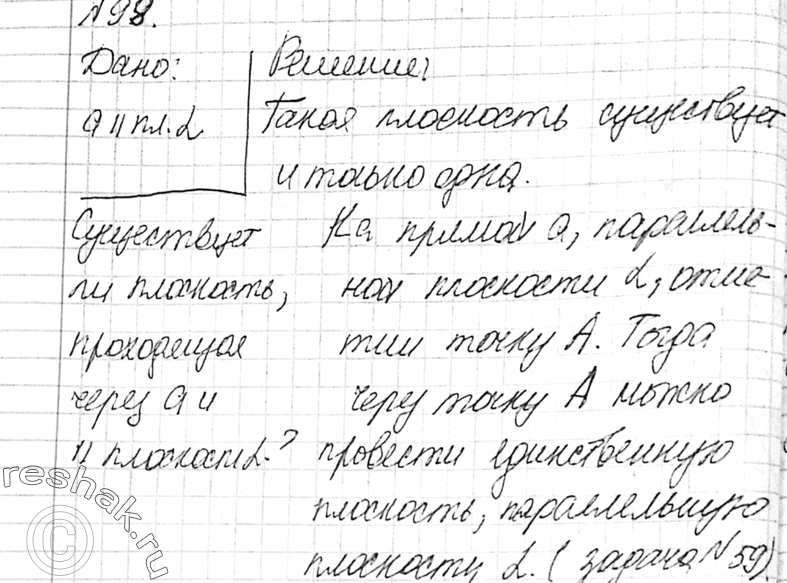 №98.
Дано:
Решение:
a || пл. α
Такая плоскость существует
и только одна.
Существует
ли плоскость,
проходящая
через a и
|| плоскости α?
На прямой a, параллель-
ной плоскости α, отме-
тим точку A. Тогда
через точку A можно
провести единственную
плоскость, параллельную
плоскости α. (задача №59)
©reshak.ru